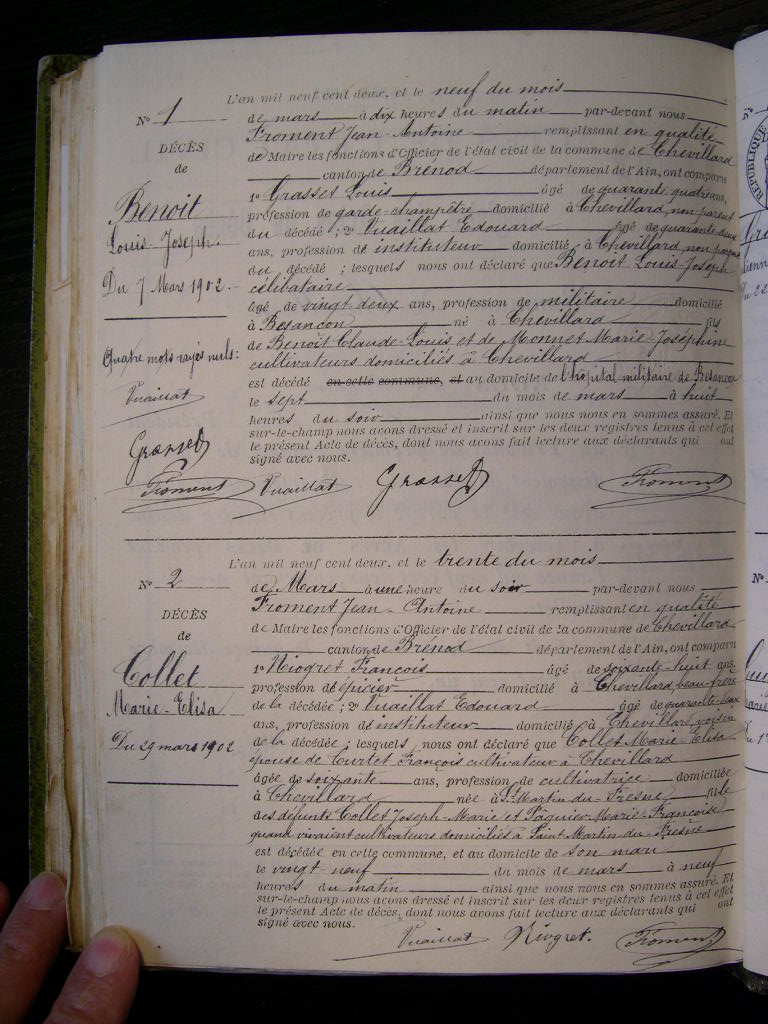 L'an mil neuf cent deux, et le neuf du mois
N° 1
de mars à dix heures du matin par-devant nous
Froment Jean-Antoine remplissant en qualité
DÉCÈS
de Maire les fonctions d'Officier de l'état civil de la commune de Chevillard
de
canton de Brénod département de l'Ain, ont comparu
Benoit
1° Grasset Louis âgé de quarante quatre ans,
profession de garde-champêtre domicilié à Chevillard, non parent
Louis-Joseph.
du décédé ; 2° Vuaillat Edouard âgé de quarante deux
ans, profession de instituteur domicilié à Chevillard, non parent
du décédé ; lesquels nous ont déclaré que Benoit Louis-Joseph
Du 7 Mars 1902.
célibataire
âgé de vingt deux ans, profession de militaire domicilié
à Besançon né à Chevillard fils
de Benoit Claude-Louis et de Monnet Marie-Joséphine
Quatre mots rayés nuls :
cultivateurs domiciliés à Chevillard
est décédé en cette commune, et au domicile de l'hôpital militaire de Besançon
Vuaillat
le sept du mois de mars à huit
heures du soir ainsi que nous nous en sommes assuré. Et
Grasset
sur-le-champ nous avons dressé et inscrit sur les deux registres tenus à cet effet
le présent Acte de décès, dont nous avons fait lecture aux déclarants qui ont
signé avec nous.
Froment Vuaillat Grasset Froment
L'an mil neuf cent deux, et le trente du mois
N° 2
de Mars à une heure du soir par-devant nous
Froment Jean-Antoine remplissant en qualité
DÉCÈS
de Maire les fonctions d'Officier de l'état civil de la commune de Chevillard
de
canton de Brénod département de l'Ain, ont comparu
Collet
1° Niogret François âgé de soixante-huit ans,
profession d'épicier domicilié à Chevillard, beau-frère
Marie-Elisa
de la décédée ; 2° Vuaillat Edouard âgé de quarante-deux
ans, profession de instituteur domicilié à Chevillard, voisin
Du 29 mars 1902
de la décédée ; lesquels nous ont déclaré que Collet Marie-Elisa
épouse de Curtet François cultivateur à Chevillard
âgée de soixante ans, profession de cultivatrice domiciliée
à Chevillard née à St Martin-du-Fresne fille
des défunts Collet Joseph-Marie et Pâquier Marie-Françoise
quand vivaient cultivateurs domiciliés à Saint Martin-du-Fresne
est décédée en cette commune, et au domicile de son mari
le vingt neuf du mois de mars à neuf
heures du matin ainsi que nous nous en sommes assuré. Et
sur-le-champ nous avons dressé et inscrit sur les deux registres tenus à cet effet
le présent Acte de décès, dont nous avons fait lecture aux déclarants qui ont
signé avec nous.
Vuaillat Niogret. Froment